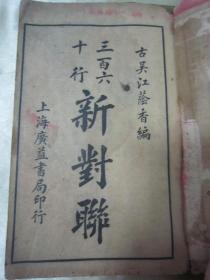 古吳江蔭香編
三百六
十行
新對聯
上海廣益書局印行